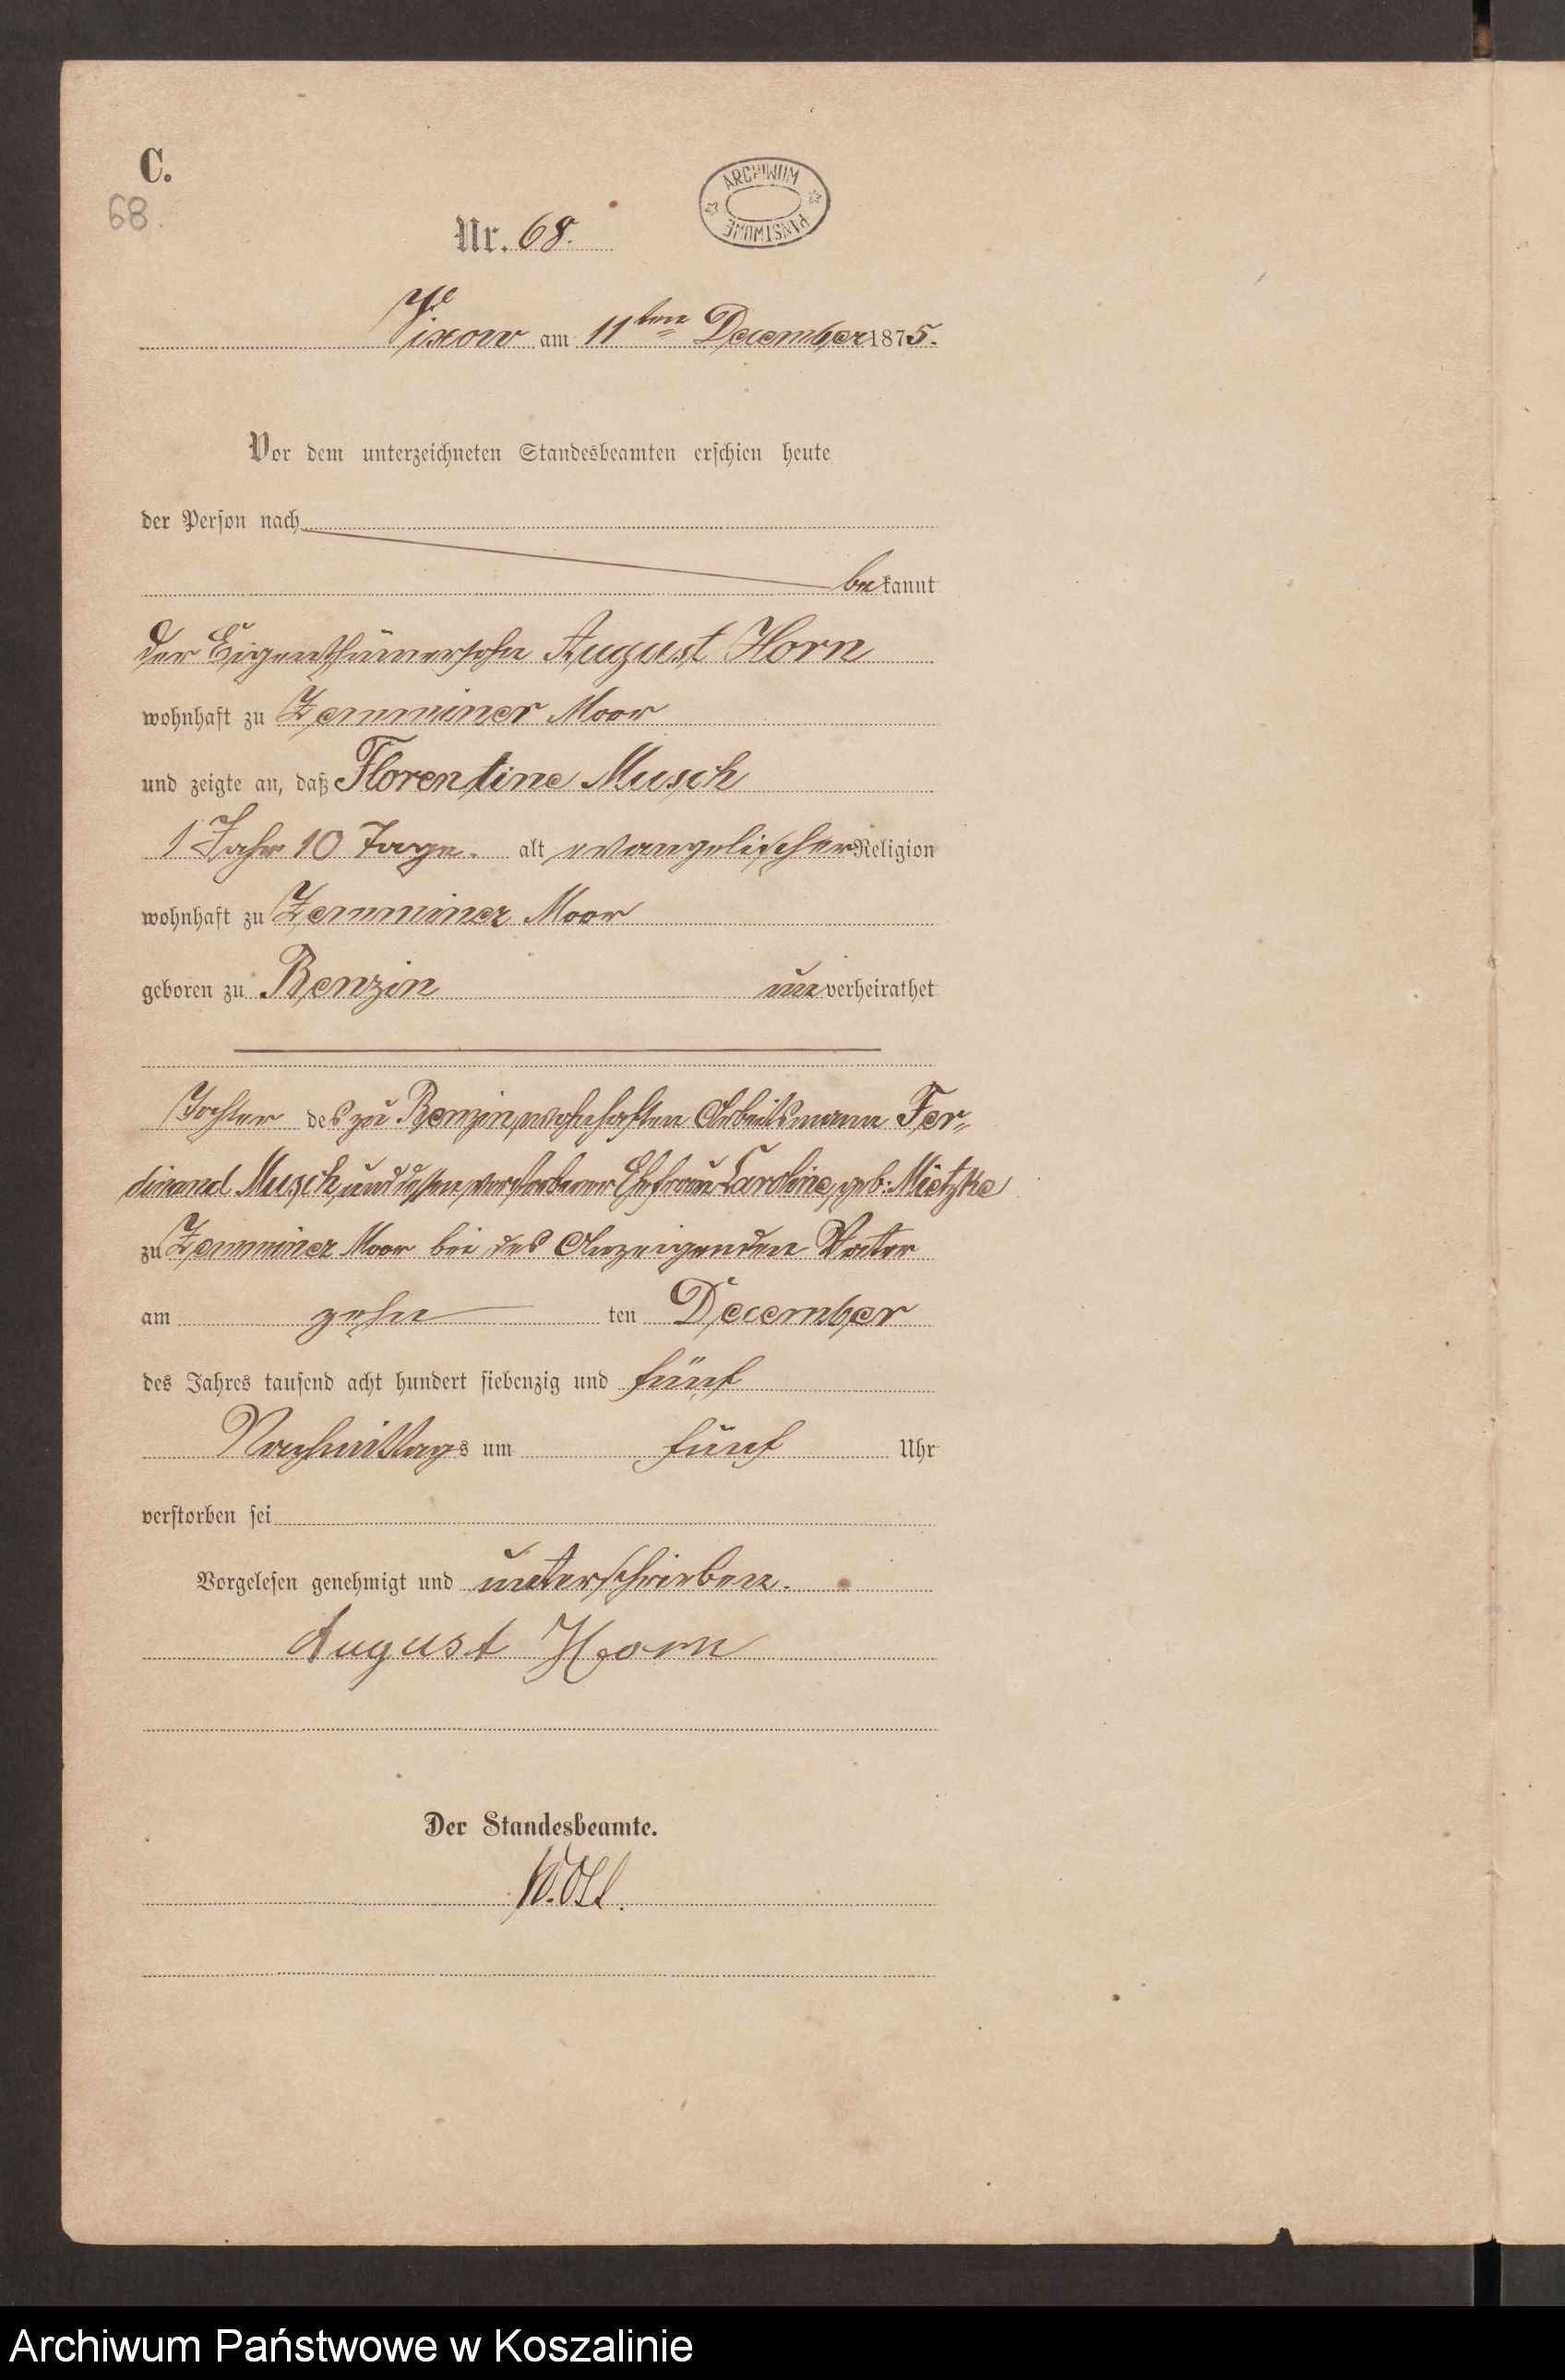 C.
68.
ARCHIWUM PAŃSTWOWE
Nr. 68.
Vixow am 11ten December 1875.
Vor dem unterzeichneten Standesbeamten erschien heute
der Person nach
bekannt
der Eigenthümersohn August Horn
wohnhaft zu Zemminer Moor
und zeigte an, daß Florentine Musch
1 Jahr 10 Tage. alt evangelischer Religion
wohnhaft zu Zemminer Moor
geboren zu Benzin unverheirathet
Tochter des zu Benzin wohnhaften Arbeitsmann Fer-
dinand Musch und dessen verstorbener Ehefrau Caroline, geb: Mietzke
zu Zemminer Moor bei des Anzeigenden Vater
am zehn ten December
des Jahres tausend acht hundert siebenzig und fünf
Nachmittags um fünf Uhr
verstorben sei
Vorgelesen genehmigt und unterschrieben.
August Horn
Der Standesbeamte.
Archiwum Państwowe w Koszalinie